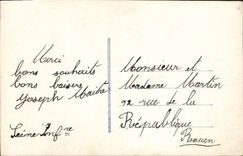 Merci
bons souhaits
bons baisers
Joseph
Seine-Infre
Monsieur et
Madame Martin
92 rue de la
République
Rouen